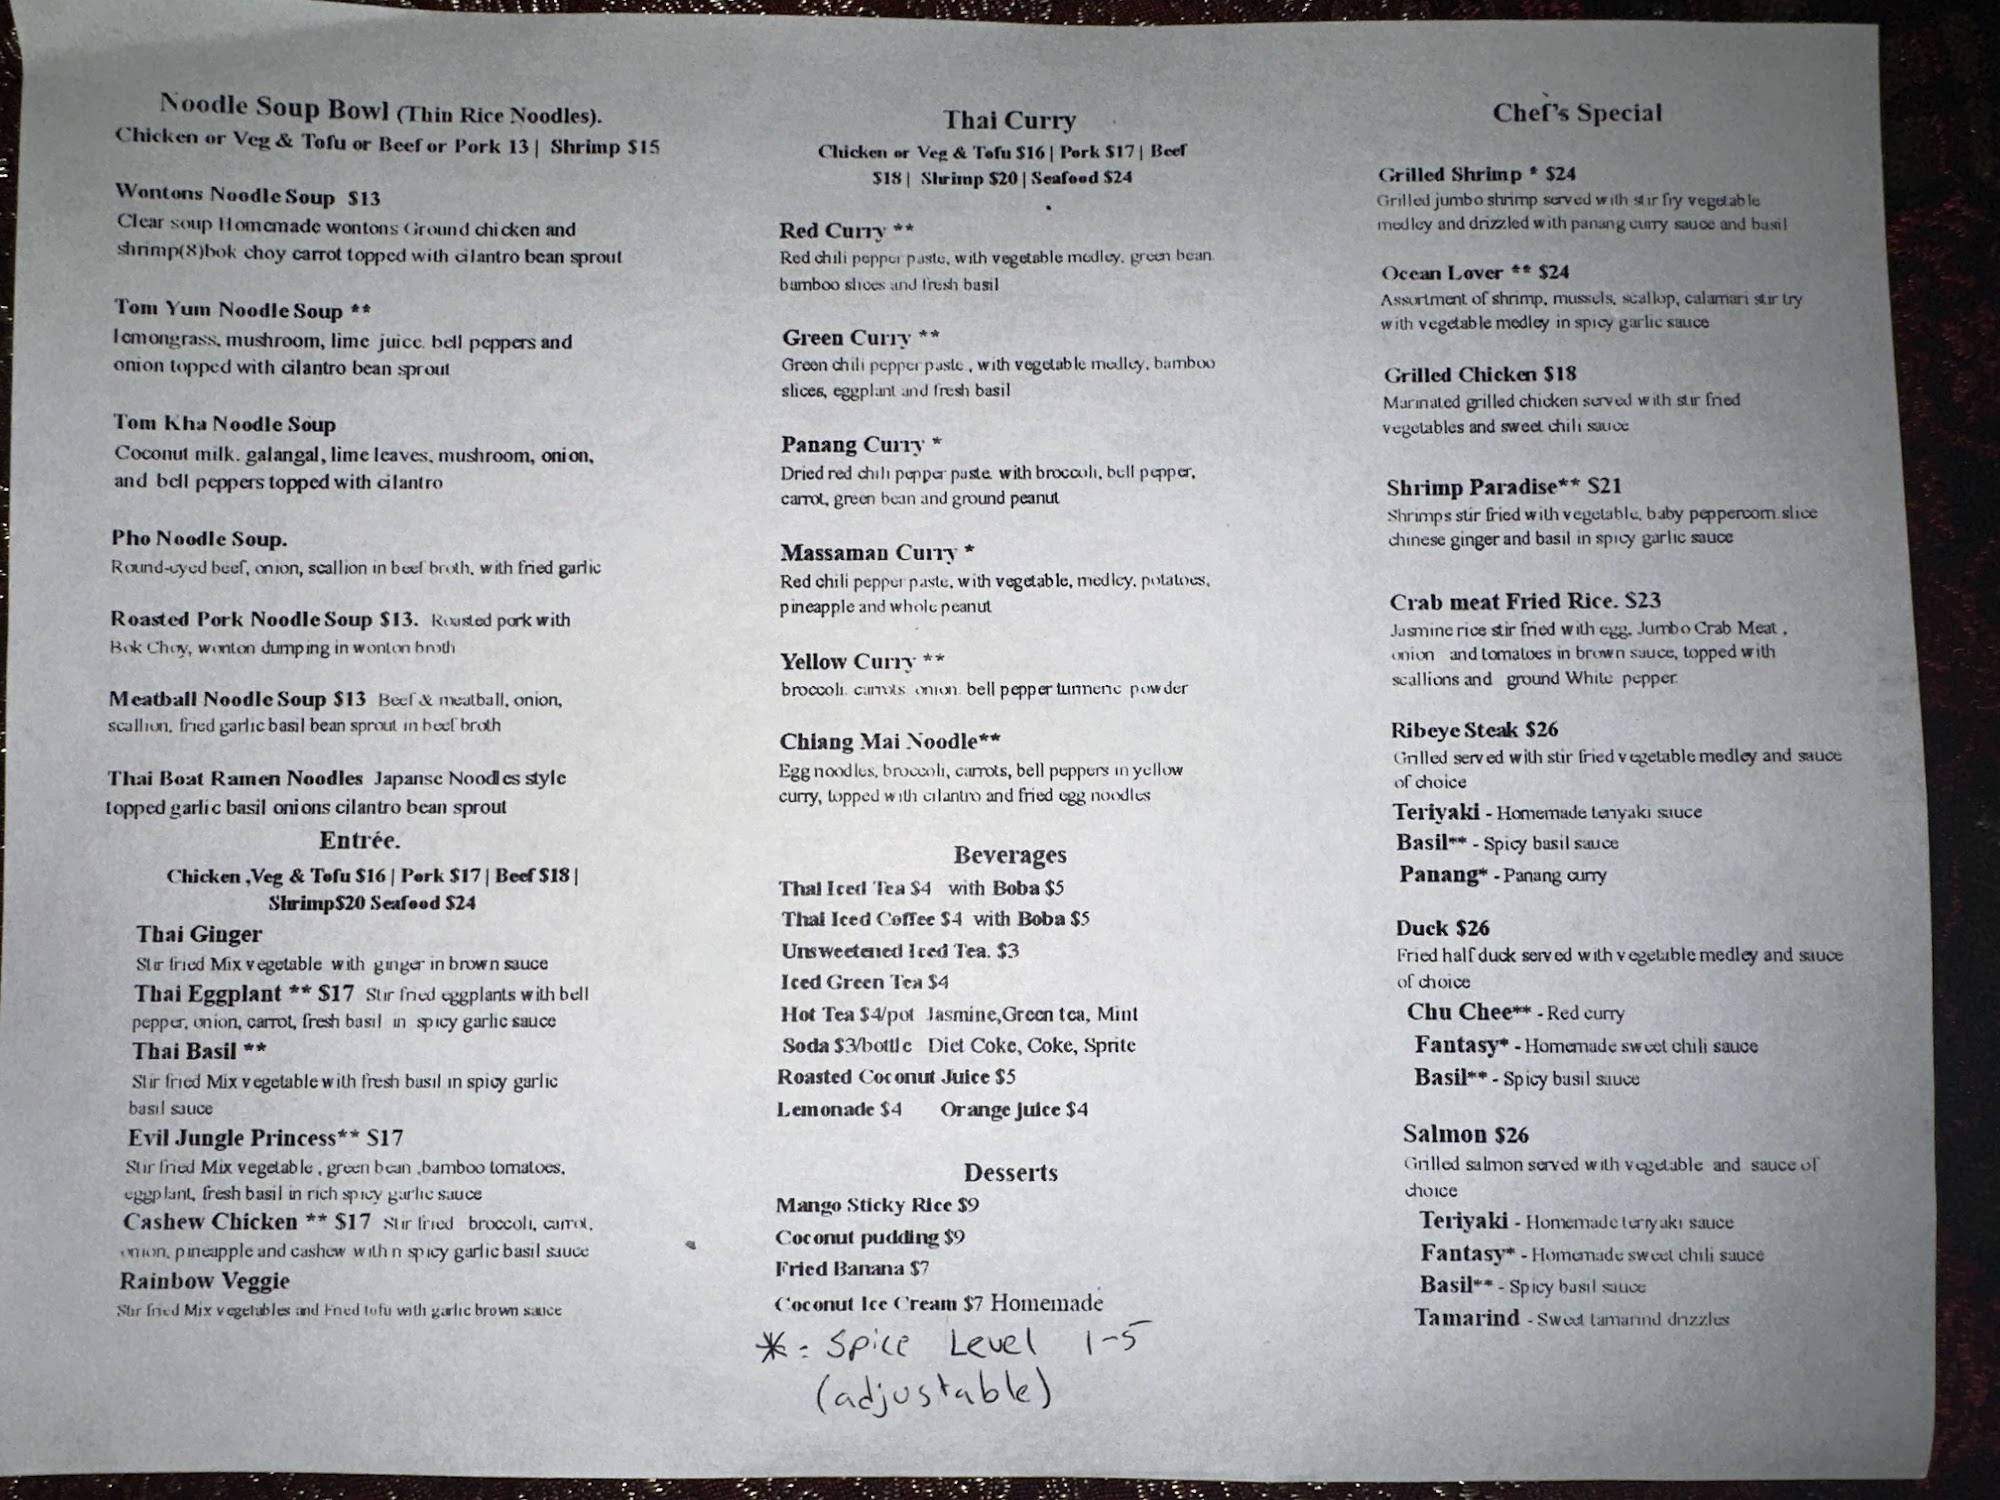 Noodle Soup Bowl (Thin Rice Noodles).
Chicken or Veg & Tofu or Beef or Pork 13 | Shrimp $15
Wontons Noodle Soup $13
Clear soup Homemade wontons Ground chicken and
shrimp(8)bok choy carrot topped with cilantro bean sprout
Tom Yum Noodle Soup **
lemongrass, mushroom, lime juice. bell peppers and
onion topped with cilantro bean sprout
Tom Kha Noodle Soup
Coconut milk. galangal, lime leaves, mushroom, onion,
and bell peppers topped with cilantro
Pho Noodle Soup.
Round-eyed beef, onion, scallion in beef broth, with fried garlic
Roasted Pork Noodle Soup $13. Roasted pork with
Bok Choy, wonton dumping in wonton broth
Meatball Noodle Soup $13 Beef & meatball, onion,
scallion, fried garlic basil bean sprout in beef broth
Thai Boat Ramen Noodles Japanse Noodles style
topped garlic basil onions cilantro bean sprout
Entrée.
Chicken ,Veg & Tofu $16 | Pork $17 | Beef $18 |
Shrimp$20 Seafood $24
Thai Ginger
Stir fried Mix vegetable with ginger in brown sauce
Thai Eggplant ** $17 Stir fried eggplants with bell
pepper, onion, carrot, fresh basil in spicy garlic sauce
Thai Basil **
Stir fried Mix vegetable with fresh basil in spicy garlic
basil sauce
Evil Jungle Princess** $17
Stir fried Mix vegetable , green bean ,bamboo tomatoes,
eggplant, fresh basil in rich spicy garlic sauce
Cashew Chicken ** $17 Stir fried broccoli, carrot,
onion, pineapple and cashew with n spicy garlic basil sauce
Rainbow Veggie
Stir fried Mix vegetables and Fried tofu with garlic brown sauce
Thai Curry
Chicken or Veg & Tofu $16 | Pork $17 | Beef
$18 | Shrimp $20 | Seafood $24
Red Curry **
Red chili pepper paste, with vegetable medley, green bean
bamboo slices and fresh basil
Green Curry **
Green chili pepper paste , with vegetable medley, bamboo
slices, eggplant and fresh basil
Panang Curry *
Dried red chili pepper paste with broccoli, bell pepper,
carrot, green bean and ground peanut
Massaman Curry *
Red chili pepper paste, with vegetable, medley, potatoes,
pineapple and whole peanut
Yellow Curry **
broccoli. carrots. onion. bell pepper turmeric powder
Chiang Mai Noodle**
Egg noodles, broccoli, carrots, bell peppers in yellow
curry, topped with cilantro and fried egg noodles
Beverages
Thai Iced Tea $4 with Boba $5
Thai Iced Coffee $4 with Boba $5
Unsweetened Iced Tea. $3
Iced Green Tea $4
Hot Tea $4/pot Jasmine,Green tea, Mint
Soda $3/bottle Diet Coke, Coke, Sprite
Roasted Coconut Juice $5
Lemonade $4 Orange juice $4
Desserts
Mango Sticky Rice $9
Coconut pudding $9
Fried Banana $7
Coconut Ice Cream $7 Homemade
* = Spice Level 1-5
(adjustable)
Chef's Special
Grilled Shrimp * $24
Grilled jumbo shrimp served with stir fry vegetable
medley and drizzled with panang curry sauce and basil
Ocean Lover ** $24
Assortment of shrimp, mussels, scallop, calamari stir fry
with vegetable medley in spicy garlic sauce
Grilled Chicken $18
Marinated grilled chicken served with stir fried
vegetables and sweet chili sauce
Shrimp Paradise** $21
Shrimps stir fried with vegetable, baby peppercorn slice
chinese ginger and basil in spicy garlic sauce
Crab meat Fried Rice. $23
Jasmine rice stir fried with egg, Jumbo Crab Meat ,
onion and tomatoes in brown sauce, topped with
scallions and ground White pepper.
Ribeye Steak $26
Grilled served with stir fried vegetable medley and sauce
of choice
Teriyaki - Homemade teriyaki sauce
Basil** - Spicy basil sauce
Panang* - Panang curry
Duck $26
Fried half duck served with vegetable medley and sauce
of choice
Chu Chee** - Red curry
Fantasy* - Homemade sweet chili sauce
Basil** - Spicy basil sauce
Salmon $26
Grilled salmon served with vegetable and sauce of
choice
Teriyaki - Homemade terryaki sauce
Fantasy* - Homemade sweet chili sauce
Basil** - Spicy basil sauce
Tamarind - Sweet tamarind drizzles